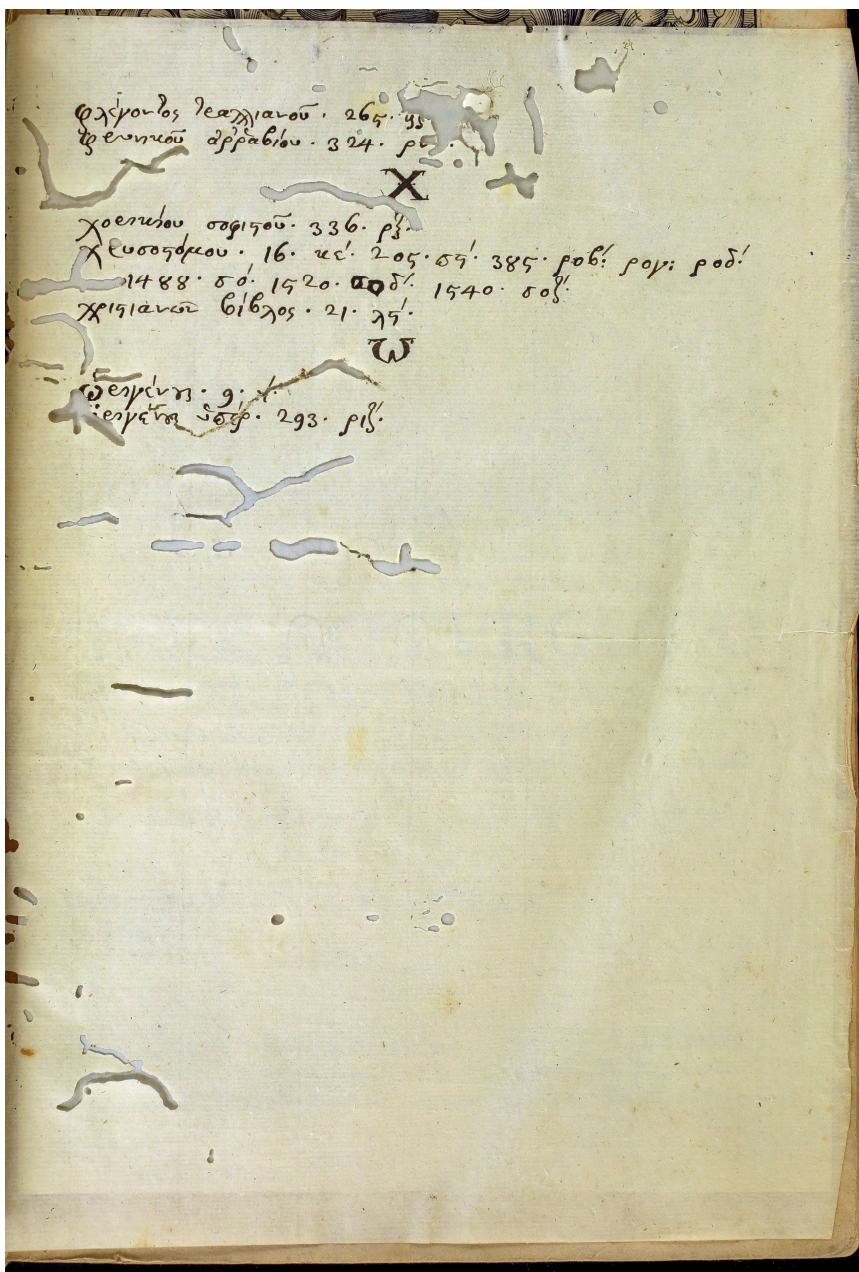 φλέγοντος τραλλιανοῦ· 265· ϟζ
φρυνικοῦ ἀῤῥαβίου· 324·
Χ
χορικίου σοφιστοῦ· 336· ρξ́·
χρυσοστόμου· 16· κέ· 205· πϛ́· 385· ροβ́: ρογ: ροδ́·
1488· σό· 1520· σοδ́· 1540· σοζ́·
χριστιανῶν βίβλος· 21· λϛ́·
ω
ὠριγένους· 9· ή·
ὠριγένους ὑπέρ· 293· ριζ́·